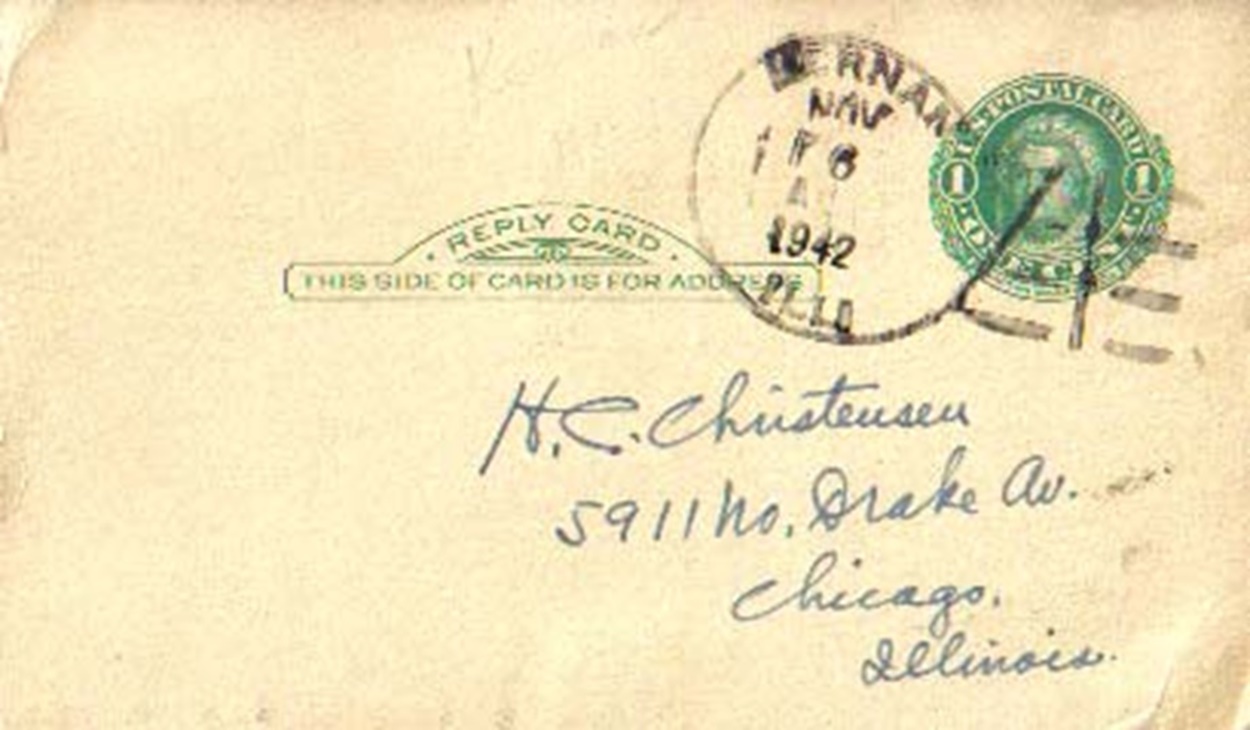 NOV
1942
U.S. POSTAL CARD
1 1
ONE CENT
REPLY CARD
THIS SIDE OF CARD IS FOR ADDRESS
H. C. Christensen
5911 No. Drake Av.
Chicago.
Illinois.